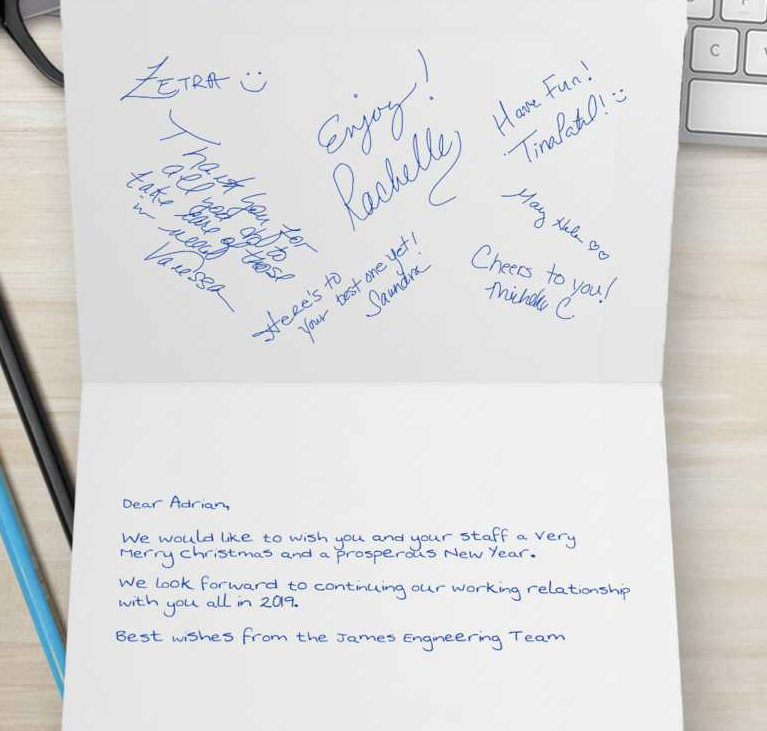 ZETRA
Thank you for
all you do to
take care of those
in need
Vanessa
Enjoy!
Rachelle
Have Fun!
Tina Patel!
Mary Helen
Here's to
your best one yet!
Saundra
Cheers to you!
Michelle C.
Dear Adrian,
We would like to wish you and your staff a very
Merry Christmas and a prosperous New Year.
We look forward to continuing our working relationship
with you all in 2019.
Best wishes from the James Engineering Team
C